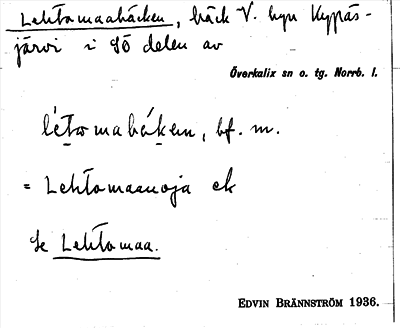 Lehtomaabäcken, bäck V. byn Kypäs-
järvi i SÖ delen av
Överkalix sn o. tg. Norrb. l.
lètomabäḱen, bf. m.
= Lehtomaanoja ek
Se Lehtomaa.
EDVIN BRÄNNSTRÖM 1936.